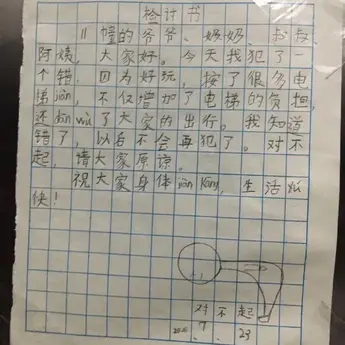 检讨书
11幢的爷爷、奶奶 叔叔
阿姨，大家好。今天我犯了一
个错，因为好玩，按了很多电
梯jiàn，不仅增加了电梯的负担，
还dān wù了大家的出行。我知道
错了，以后不会再犯了。对不
起，请大家原谅。
祝大家身体jiàn kāng，生活愉
快！
对不起
7. 23